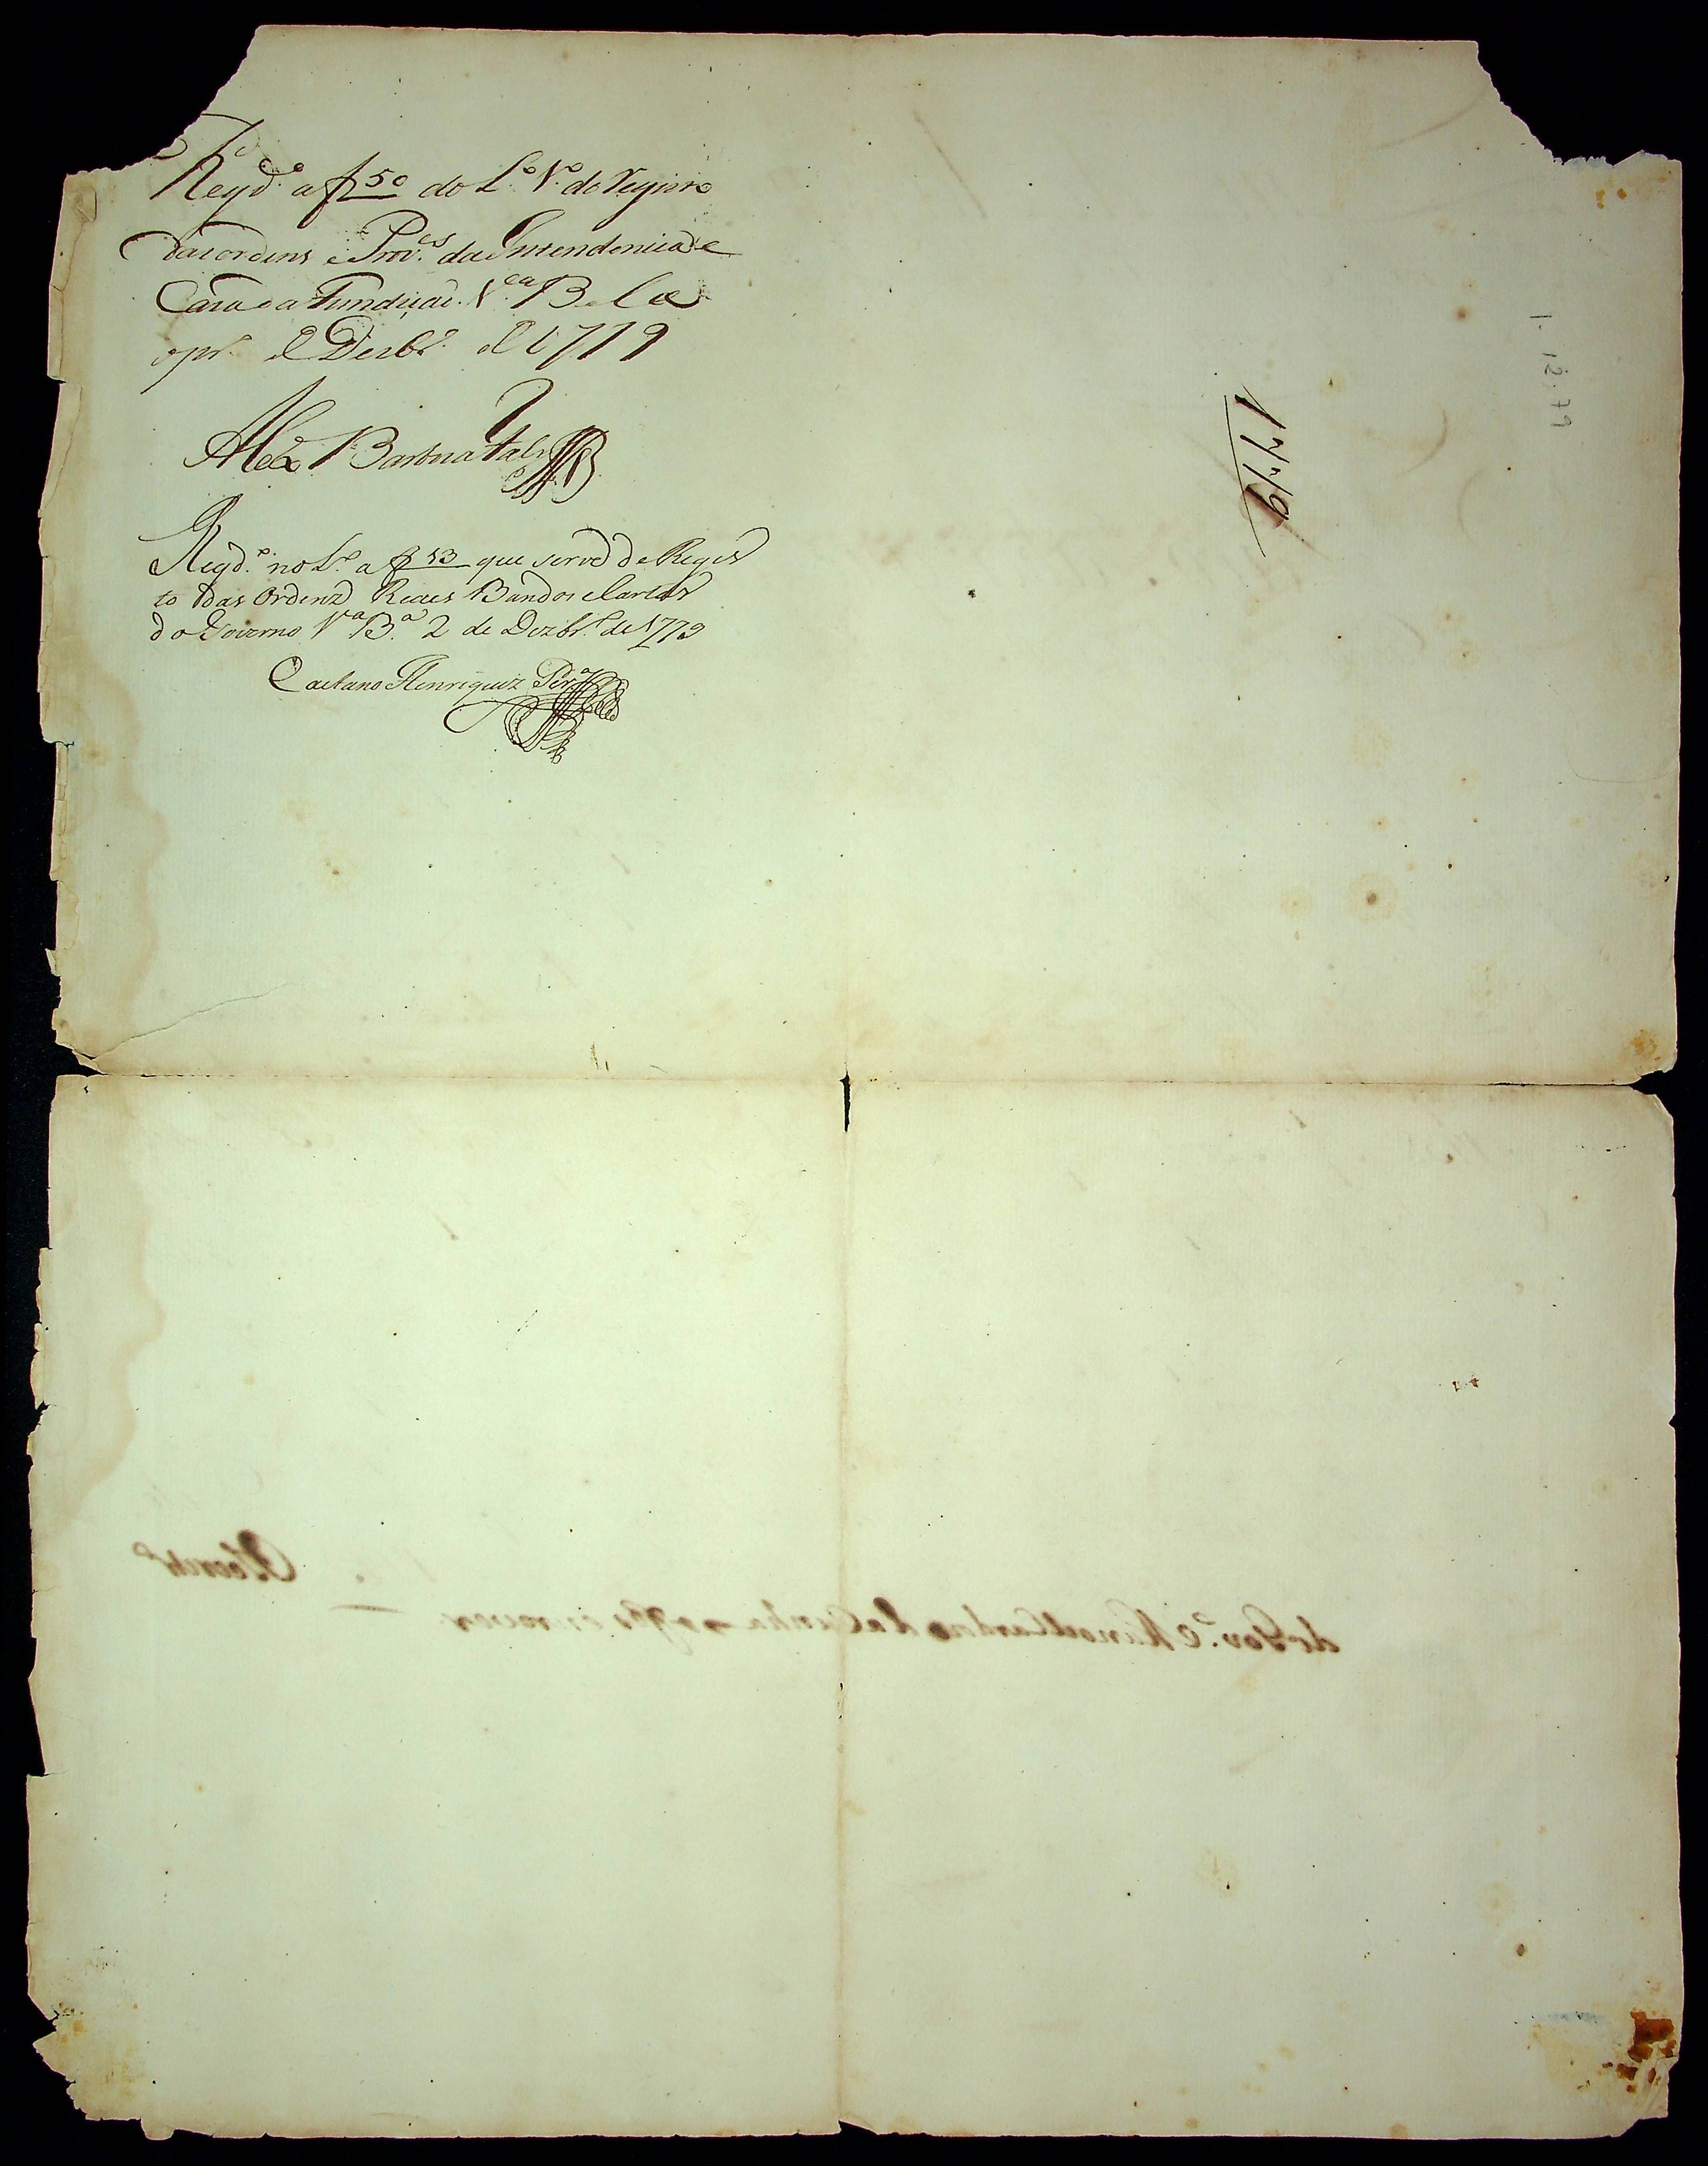 Regd.º a f 50 do L.º V.º do Registo
das ordens e Prov.es da Intendencia e
Casa da Fundiçaõ. V.ca Bella
o pr.º de Dezbr.º de 1779
Alex.e Barboza
Regd.º no L.º a f 53 que serve de Regis
to das Ordens Reaes Bandos e Cartas
do Governo V.a B.a 2 de Dezbr.º de 1779
Caetano Henriquez Per.a
1779
1-12-79